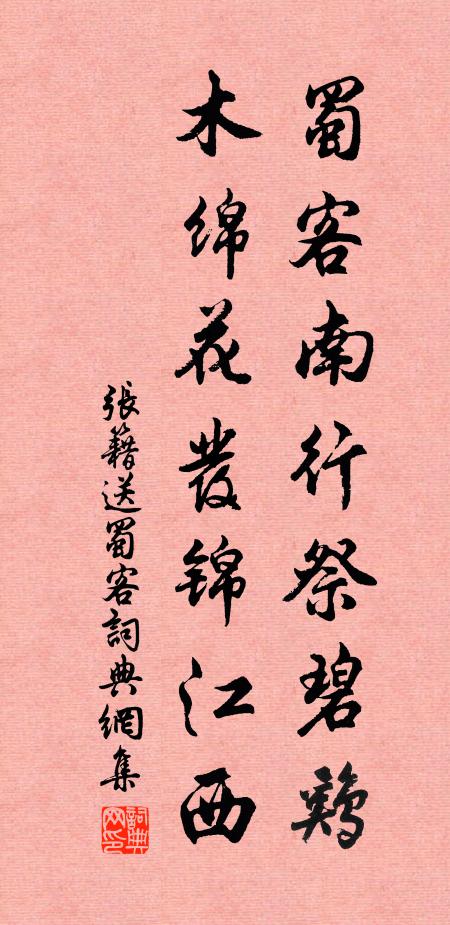 蜀客南行祭碧鷄
木绵花發锦江西
張籍送蜀客詞典網集
詞典网印